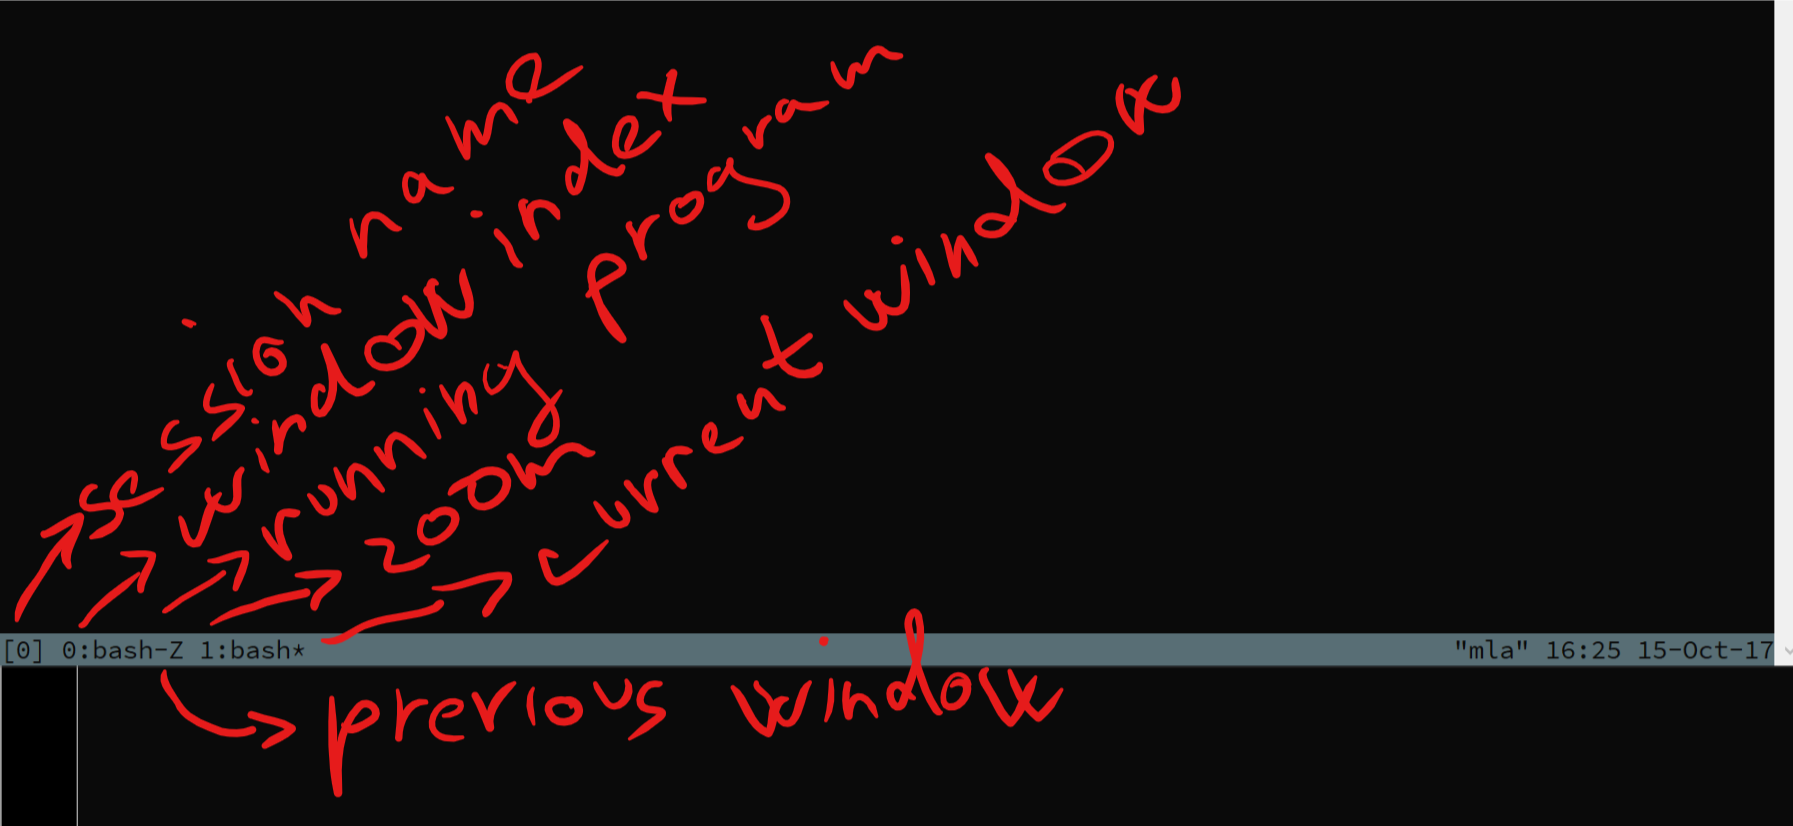 session name
window index
running program
zoom
current window
[0] 0:bash-Z 1:bash* "mla" 16:25 15-Oct-17
previous window